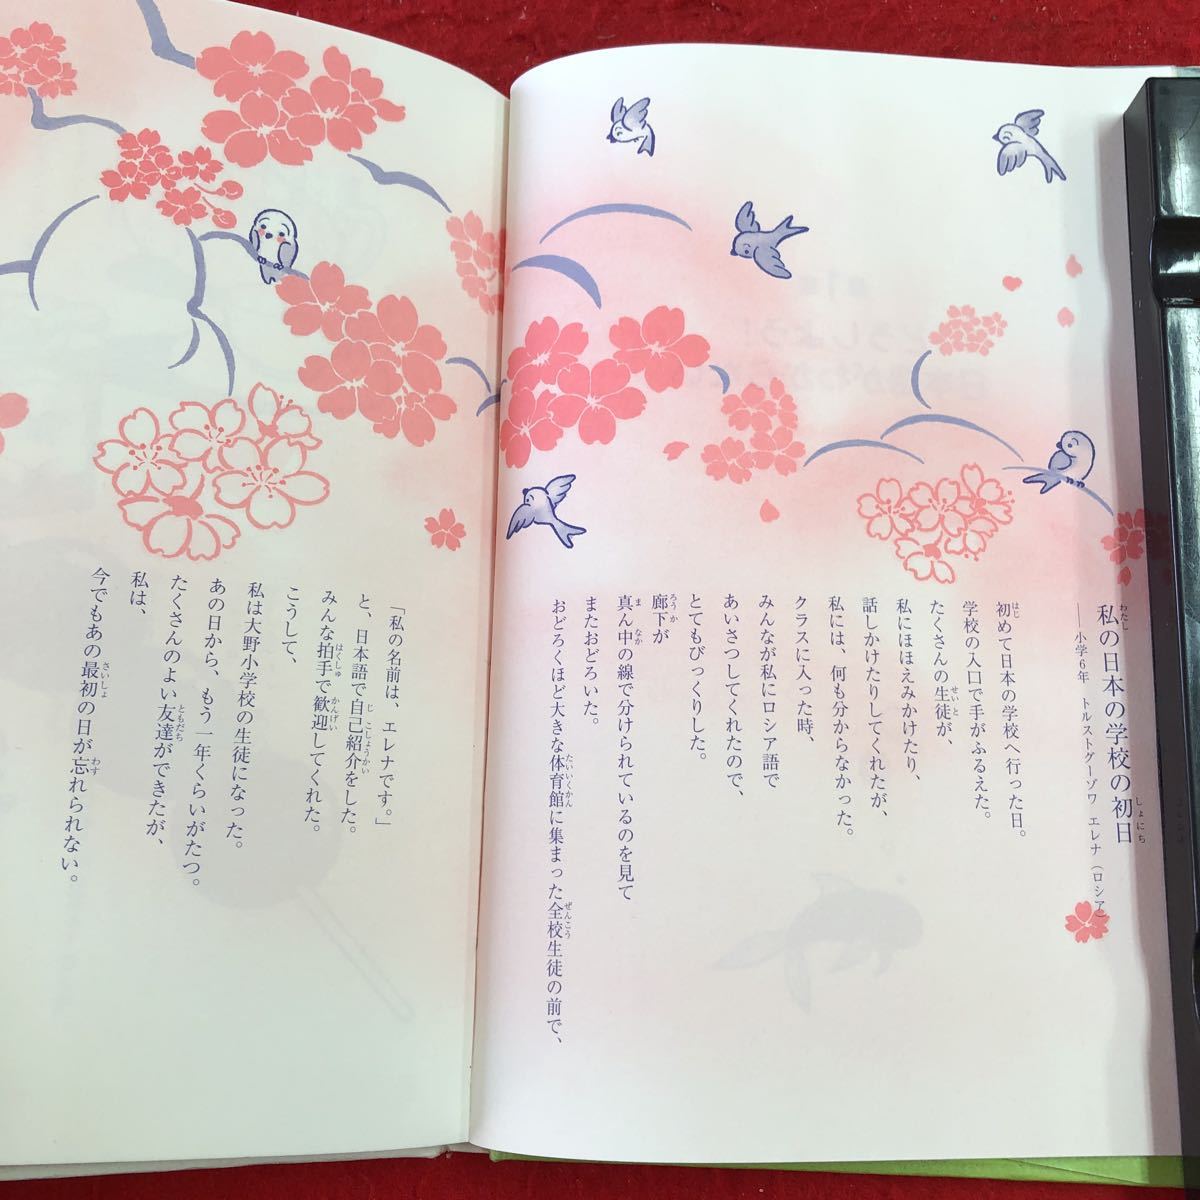 私の日本の学校の初日
わたし
しょにち
――小学6年 トルストグーゾワ エレナ（ロシア）
初めて日本の学校へ行った日。
はじ
学校の入口で手がふるえた。
たくさんの生徒が、
せいと
私にほほえみかけたり、
話しかけたりしてくれたが、
私には、何も分からなかった。
クラスに入った時、
みんなが私にロシア語で
あいさつしてくれたので、
とてもびっくりした。
廊下が
ろうか
真ん中の線で分けられているのを見て
ま
なか
またおどろいた。
おどろくほど大きな体育館に集まった全校生徒の前で、
たいいくかん
ぜんこう
「私の名前は、エレナです。」
と、日本語で自己紹介をした。
じこしょうかい
みんな拍手で歓迎してくれた。
はくしゅ
かんげい
こうして、
私は大野小学校の生徒になった。
あの日から、もう一年くらいがたつ。
たくさんのよい友達ができたが、
ともだち
私は、
今でもあの最初の日が忘れられない。
さいしょ
わす